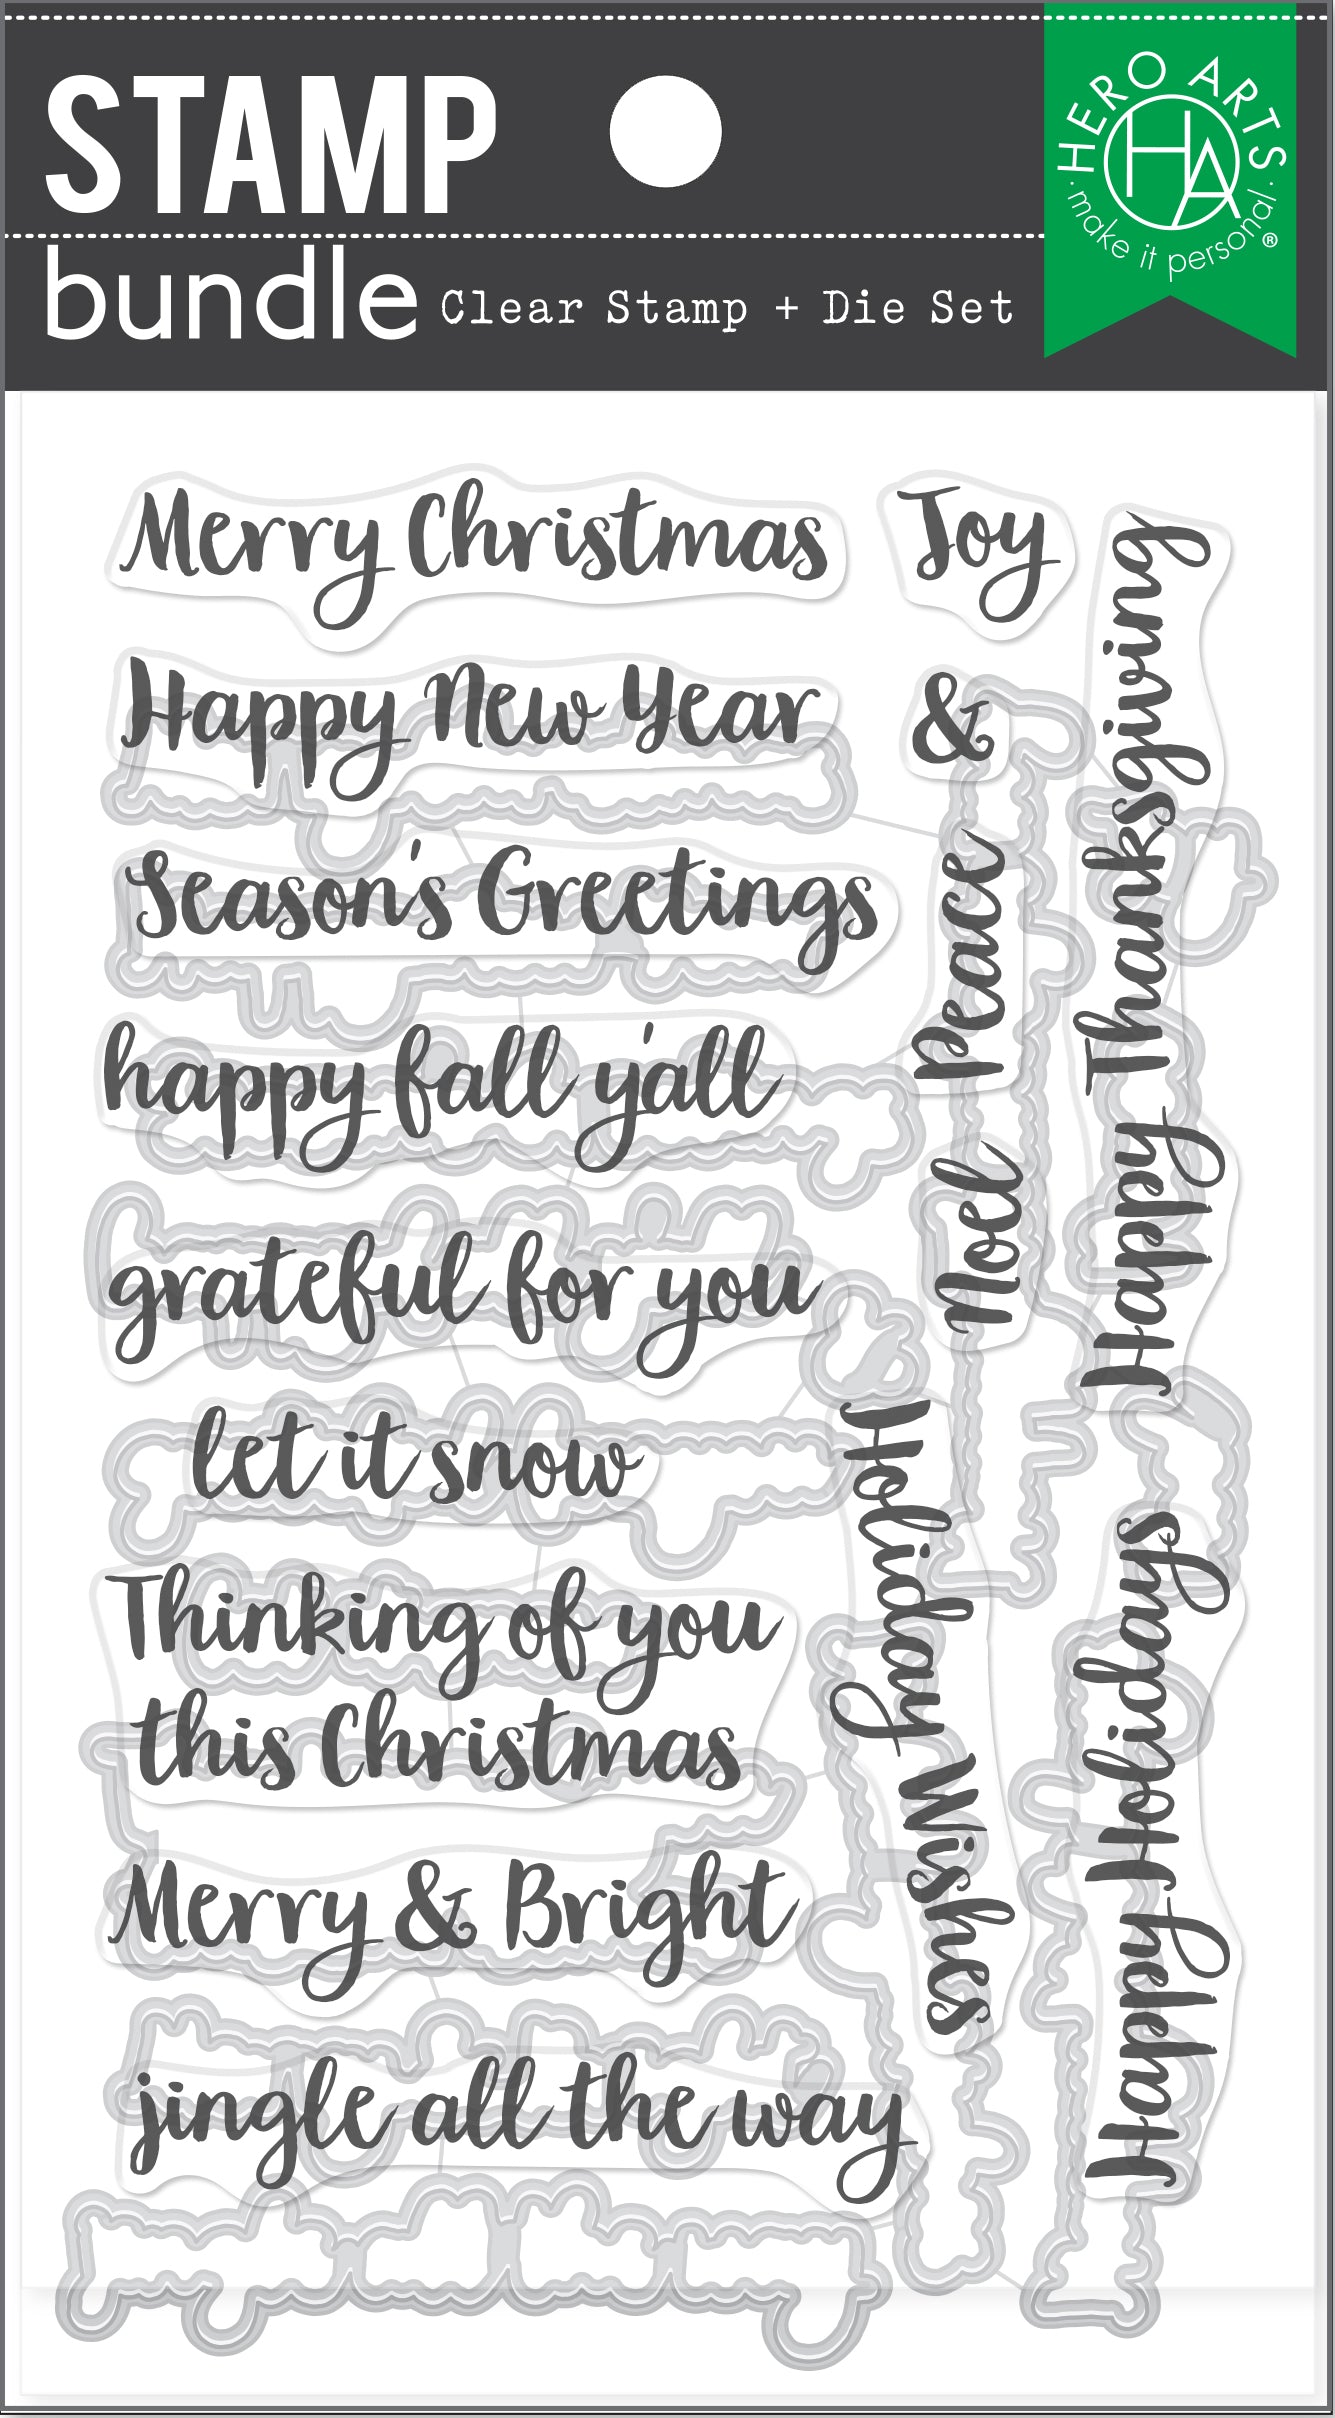 STAMP
bundle Clear Stamp + Die Set
HERO ARTS
HA
· make it personal · ®
Merry Christmas
Joy
Happy New Year
&
Season's Greetings
Peace
happy fall y'all
Happy Thanksgiving
grateful for you
Noel
let it snow
Holiday Wishes
Thinking of you
this Christmas
Happy Holidays
Merry & Bright
jingle all the way